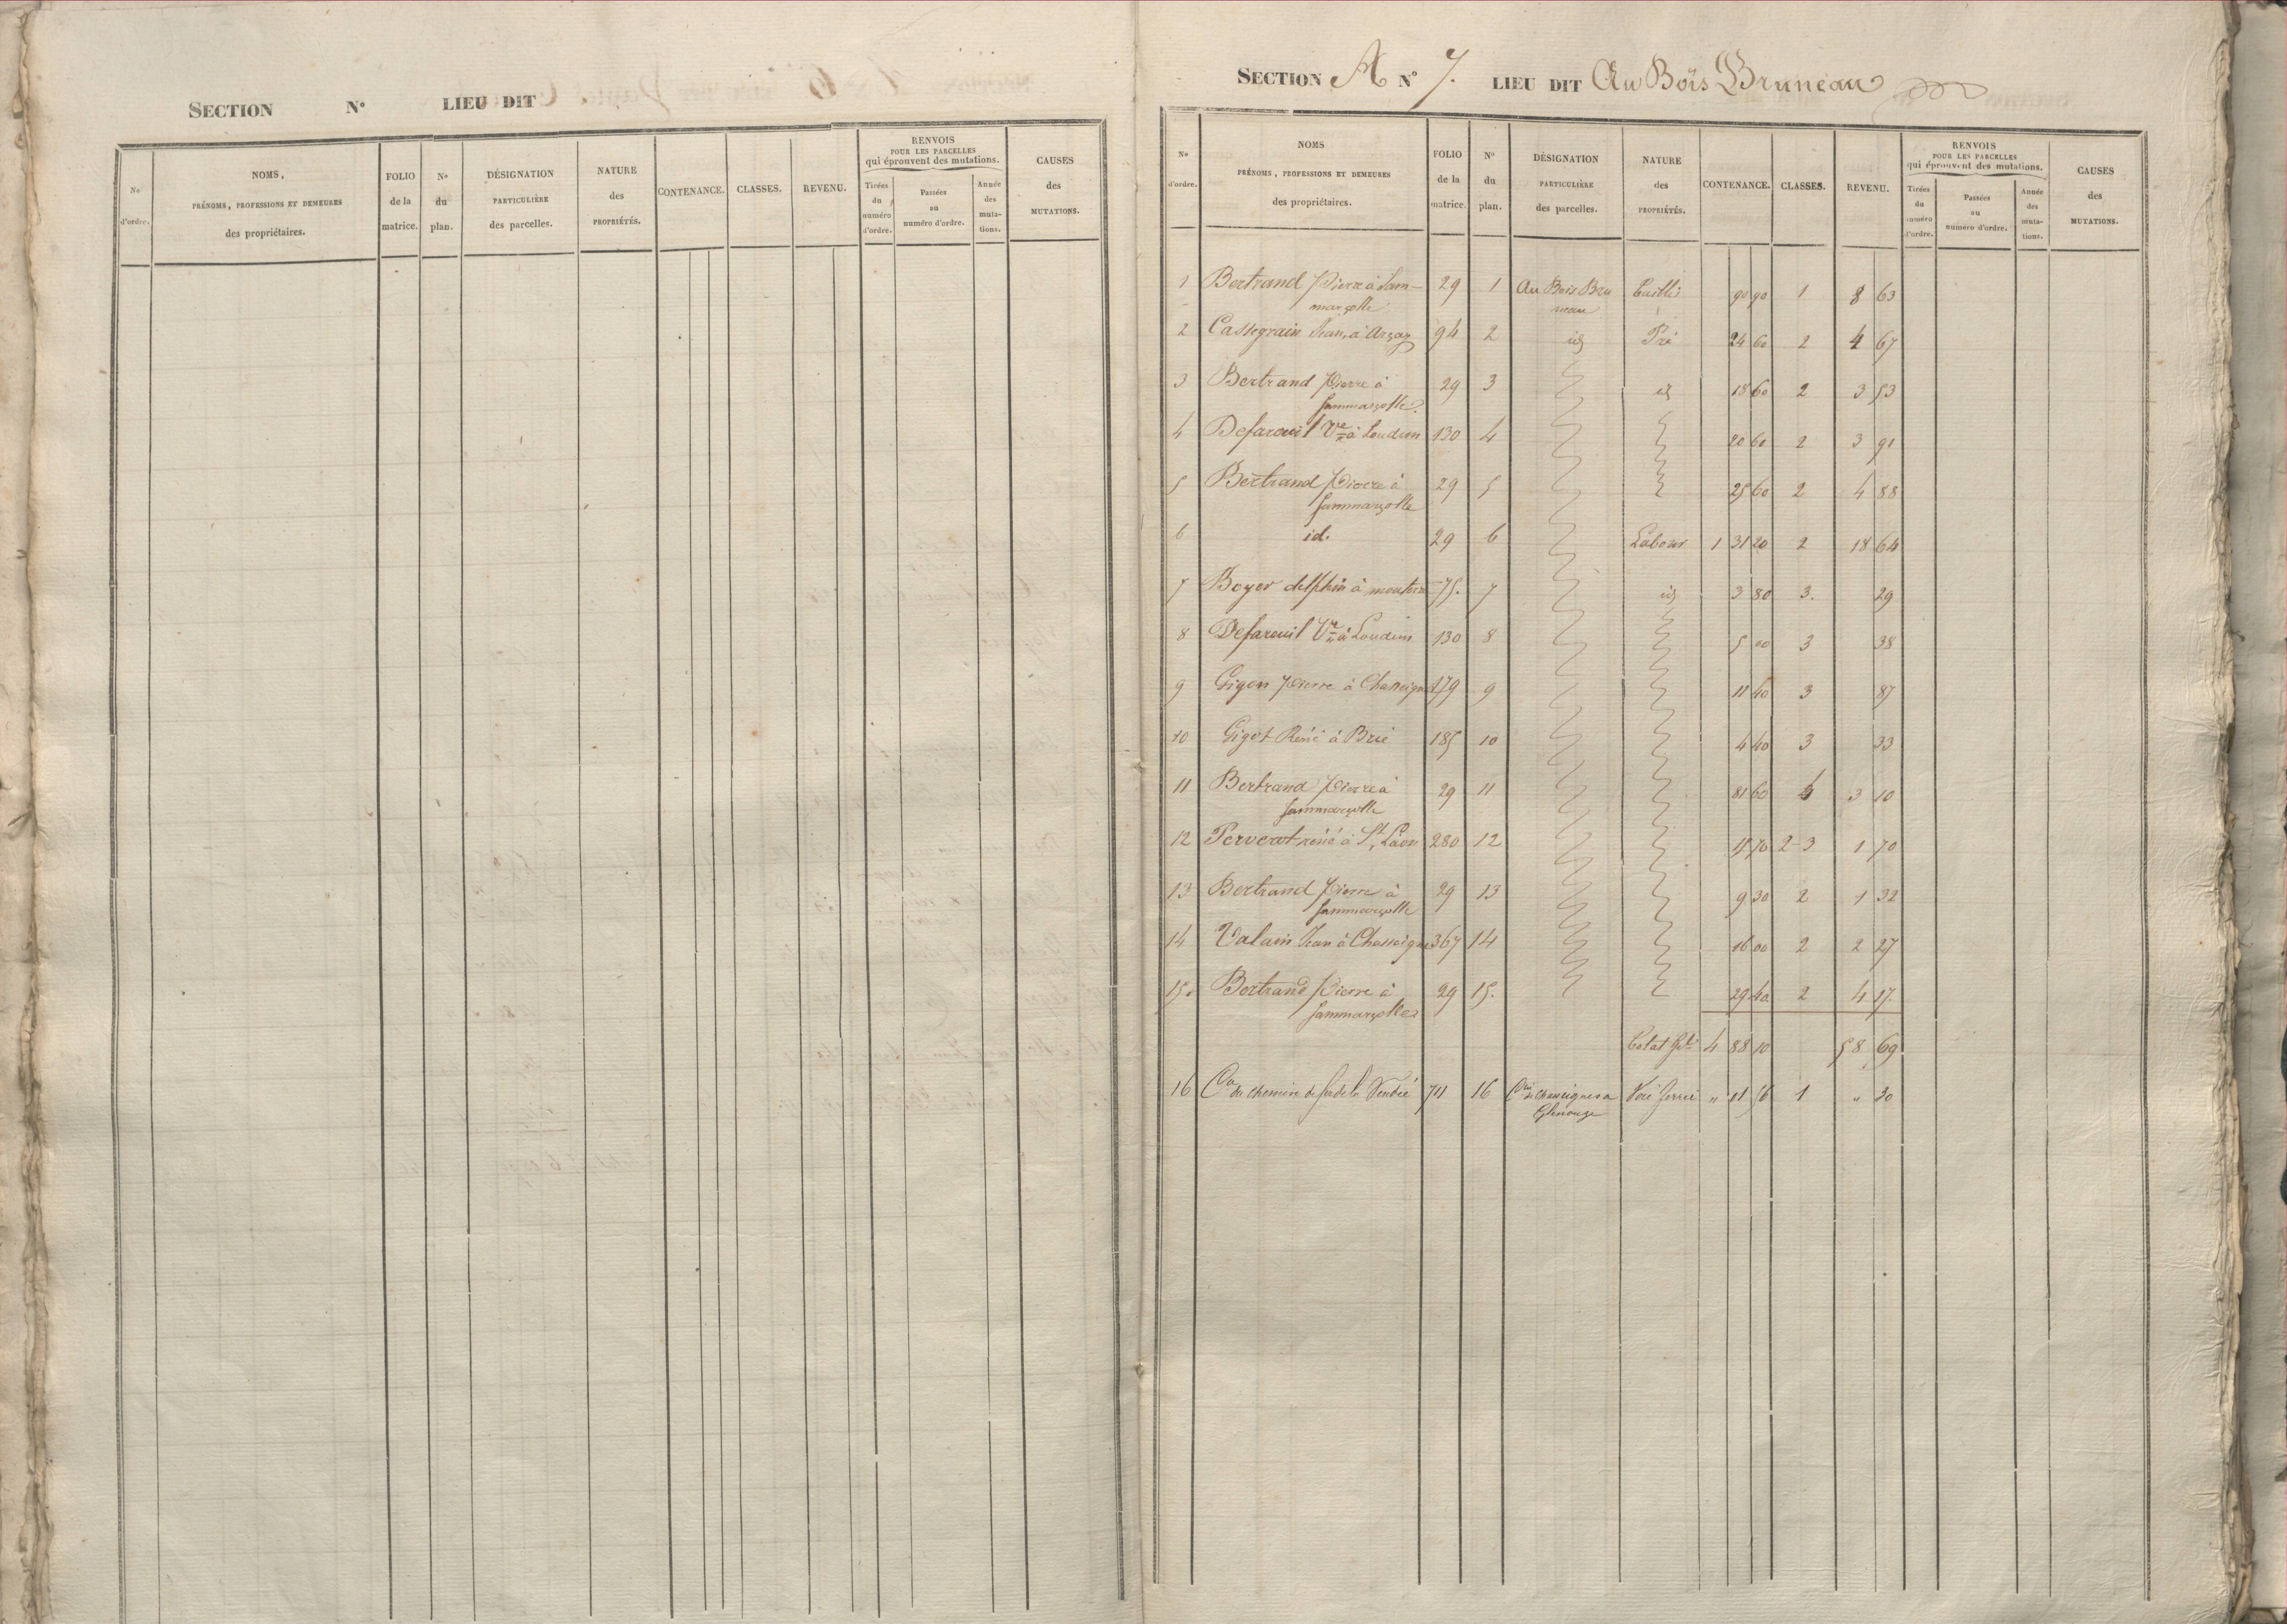 SECTION N° LIEU DIT
N° d'ordre. NOMS, PRÉNOMS, PROFESSIONS ET DEMEURES des propriétaires. FOLIO de la matrice. N° du plan. DÉSIGNATION PARTICULIÈRE des parcelles. NATURE des PROPRIÉTÉS. CONTENANCE. CLASSES. REVENU. RENVOIS POUR LES PARCELLES qui éprouvent des mutations. Tirées du numéro d'ordre. Passées au numéro d'ordre. Année des mutations. CAUSES des MUTATIONS.
SECTION A N° 7. LIEU DIT Au Bois Bruneau
N° d'ordre. NOMS PRÉNOMS, PROFESSIONS ET DEMEURES des propriétaires. FOLIO de la matrice. N° du plan. DÉSIGNATION PARTICULIÈRE des parcelles. NATURE des PROPRIÉTÉS. CONTENANCE. CLASSES. REVENU. RENVOIS POUR LES PARCELLES qui éprouvent des mutations. Tirées du numéro d'ordre. Passées au numéro d'ordre. Année des mutations. CAUSES des MUTATIONS.
1 Bertrand Pierre à Sam- 29 1 Au Bois Bru Taillis 90 90 1 8 63
marçolle neau
2 Cassegrain Jean, à Arçay 94 2 id Pré 24 60 2 4 67
3 Bertrand Pierre à 29 3 id 18 60 2 3 53
Sammarçolle.
4 Defareuil Vve à Loudun 130 4 20 60 2 3 91
5 Bertrand Pierre à 29 5 25 60 2 4 88
Sammarçolle
6 id. 29 6 Labour 1 31 20 2 18 64
7 Boyer delphin à 75. 7 id 3 80 3. 29
8 Defareuil Vve à Loudun 130 8 5 00 3 38
9 Gigon Pierre à Chasseignes 179 9 11 40 3 87
10 Gigot René à Brie 185 10 4 40 3 33
11 Bertrand Pierre à 29 11 81 60 4 3 10
Sammarçolle
12 réné à St Laon 280 12 70 2-3 1 70
13 Bertrand Pierre à 29 13 9 30 2 1 32
Sammarçolle
14 Valain Jean à Chasseignes 367 14 16 00 2 2 27
15. Bertrand Pierre à 29 15. 29 40 2 4 17.
Sammarçolles
Total Gal 4 88 10 58 69
16 Cie du Chemin de fer de la Vendée 711 16 de Chasseignes a Voie ferrée " 01 56 1 " 30
Glenouze